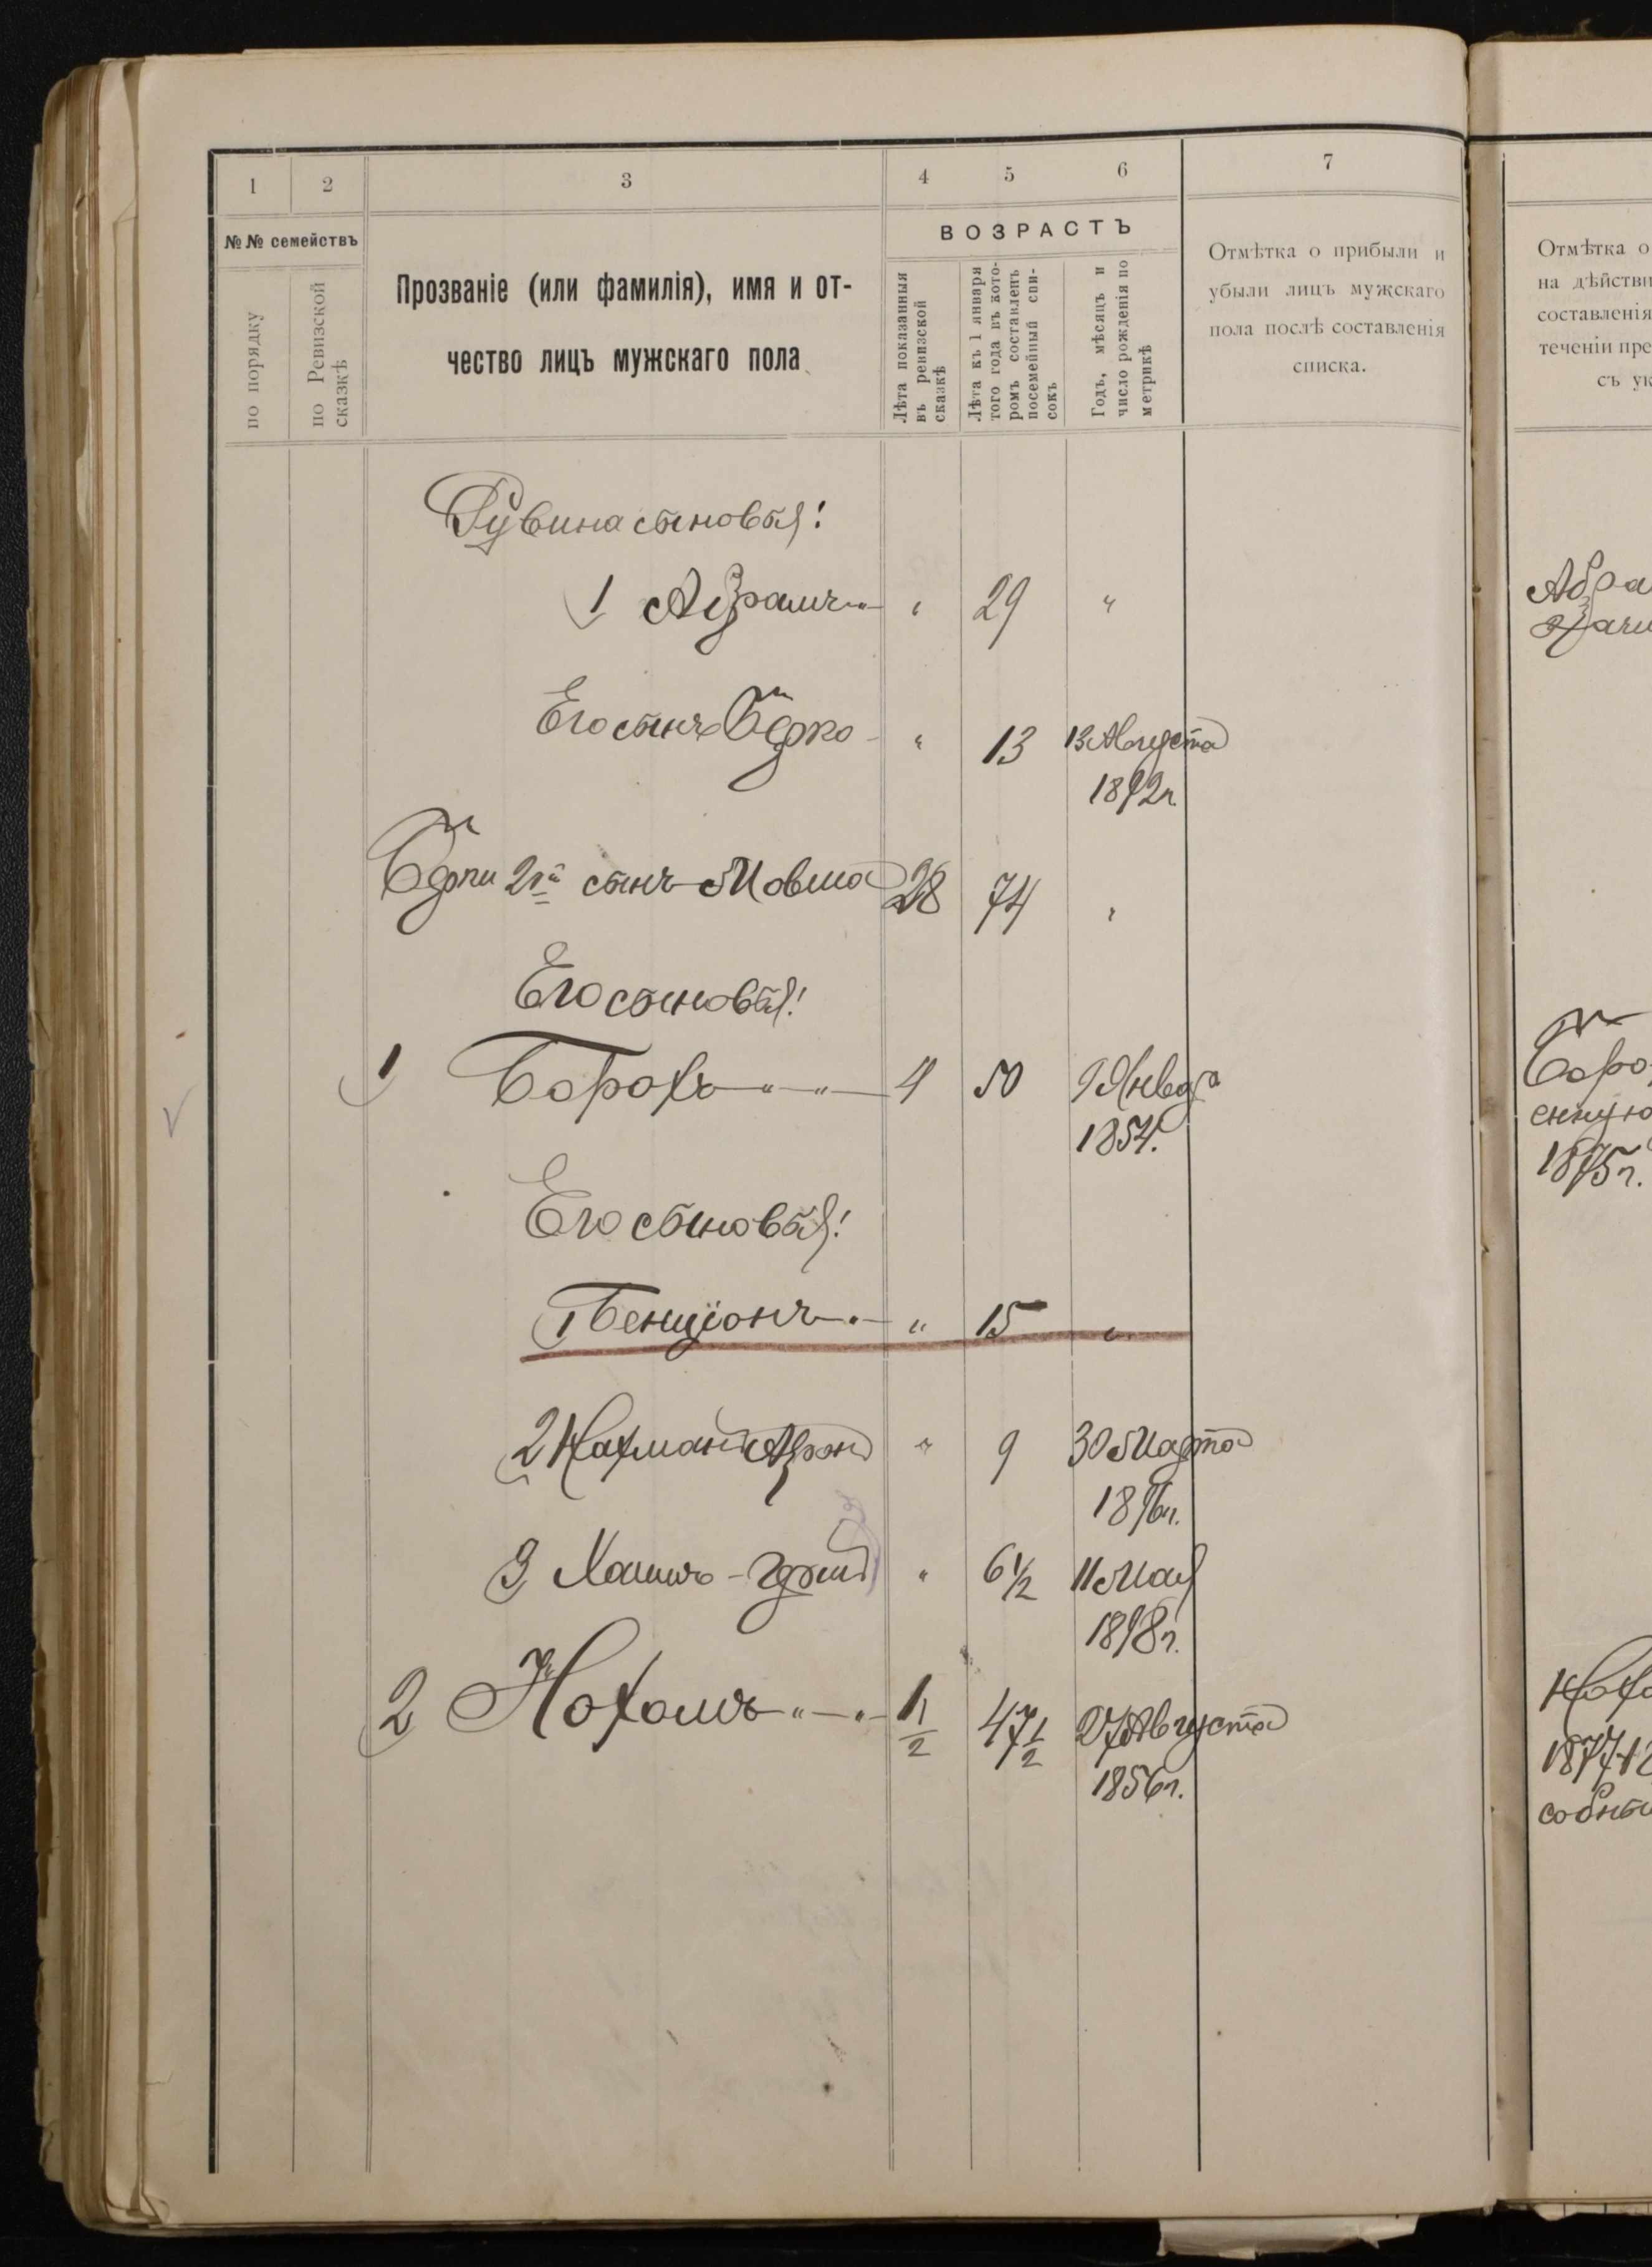 1 2 3 4 5 6 7
№№ семействъ
по порядку
по Ревизской сказкѣ
Прозваніе (или фамилія), имя и от-
чество лицъ мужскаго пола
ВОЗРАСТЪ
Лѣта показанныя
въ ревизской
сказкѣ
Лѣта къ 1 января
того года въ кото-
ромъ составленъ
посемейный спи-
сокъ
Годъ, мѣсяцъ и
число рожденія по
метрикѣ
Отмѣтка о прибыли и
убыли лицъ мужскаго
пола послѣ составленія
списка.
Отмѣтка о
на дѣйстви
составленія
теченіи пре
съ ук
Рувина сыновья:
1 Абрамъ " 29 "
Его сынъ Берко " 13 13 Августа
1892 г.
Берки 2й сынъ Мовша 28 74 "
Его сыновья:
1 Борохъ 4 50 9 Января
1854.
Его сыновья:
1 Бенціонъ " 15 "
2 Нахманъ Аронъ " 9 30 Марта
1896 г.
3 Хаимъ- " 6 1/2 11 Мая
1898 г.
2 Нохомъ 1/2 47 1/2 27 Августа
1856 г.
Абра
Боро
енную
1875 г.
Нохо
1877